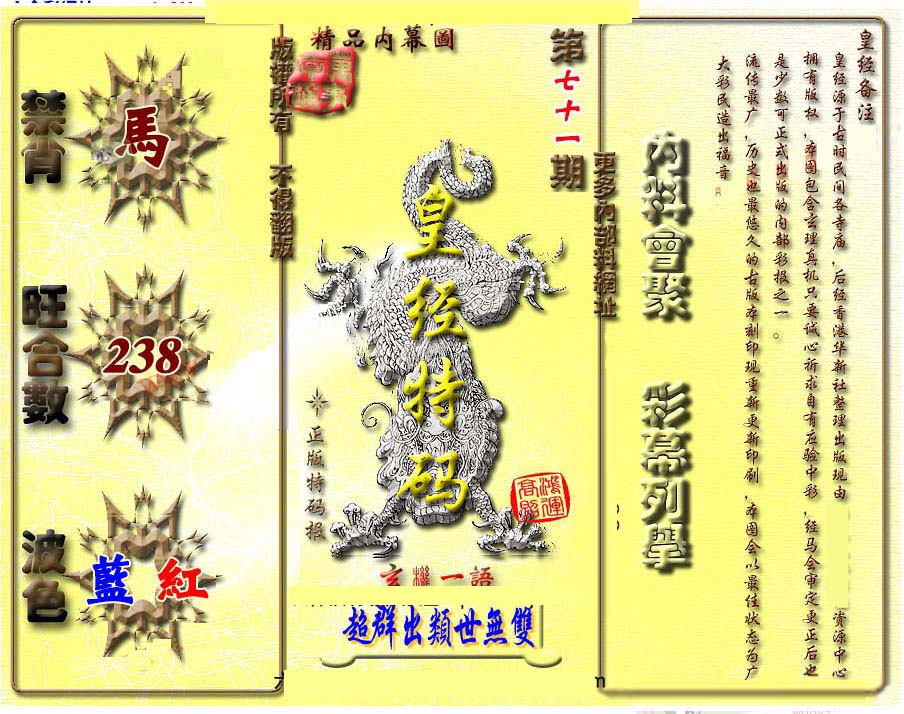 精品内幕圖
第七十一期
版權所有 不得翻版
更多内部料網址
皇经特码
正版特码报
鴻運高照
玄機一語
超群出類世無雙
禁肖
馬
旺合數
238
波色
藍 紅
内料會聚
彩幕列舉
皇经备注
皇经源于古时民间各寺庙,后经香港华新社整理出版现由 资源中心
拥有版权,本图包含玄理真机只要诚心祈求自有应验中彩,经马会审定更正后也
是少数可正式出版的内部彩报之一。
流传最广,历史也最悠久的古版本刻印现重新更新印刷,本图会以最佳状态为广
大彩民造出福音